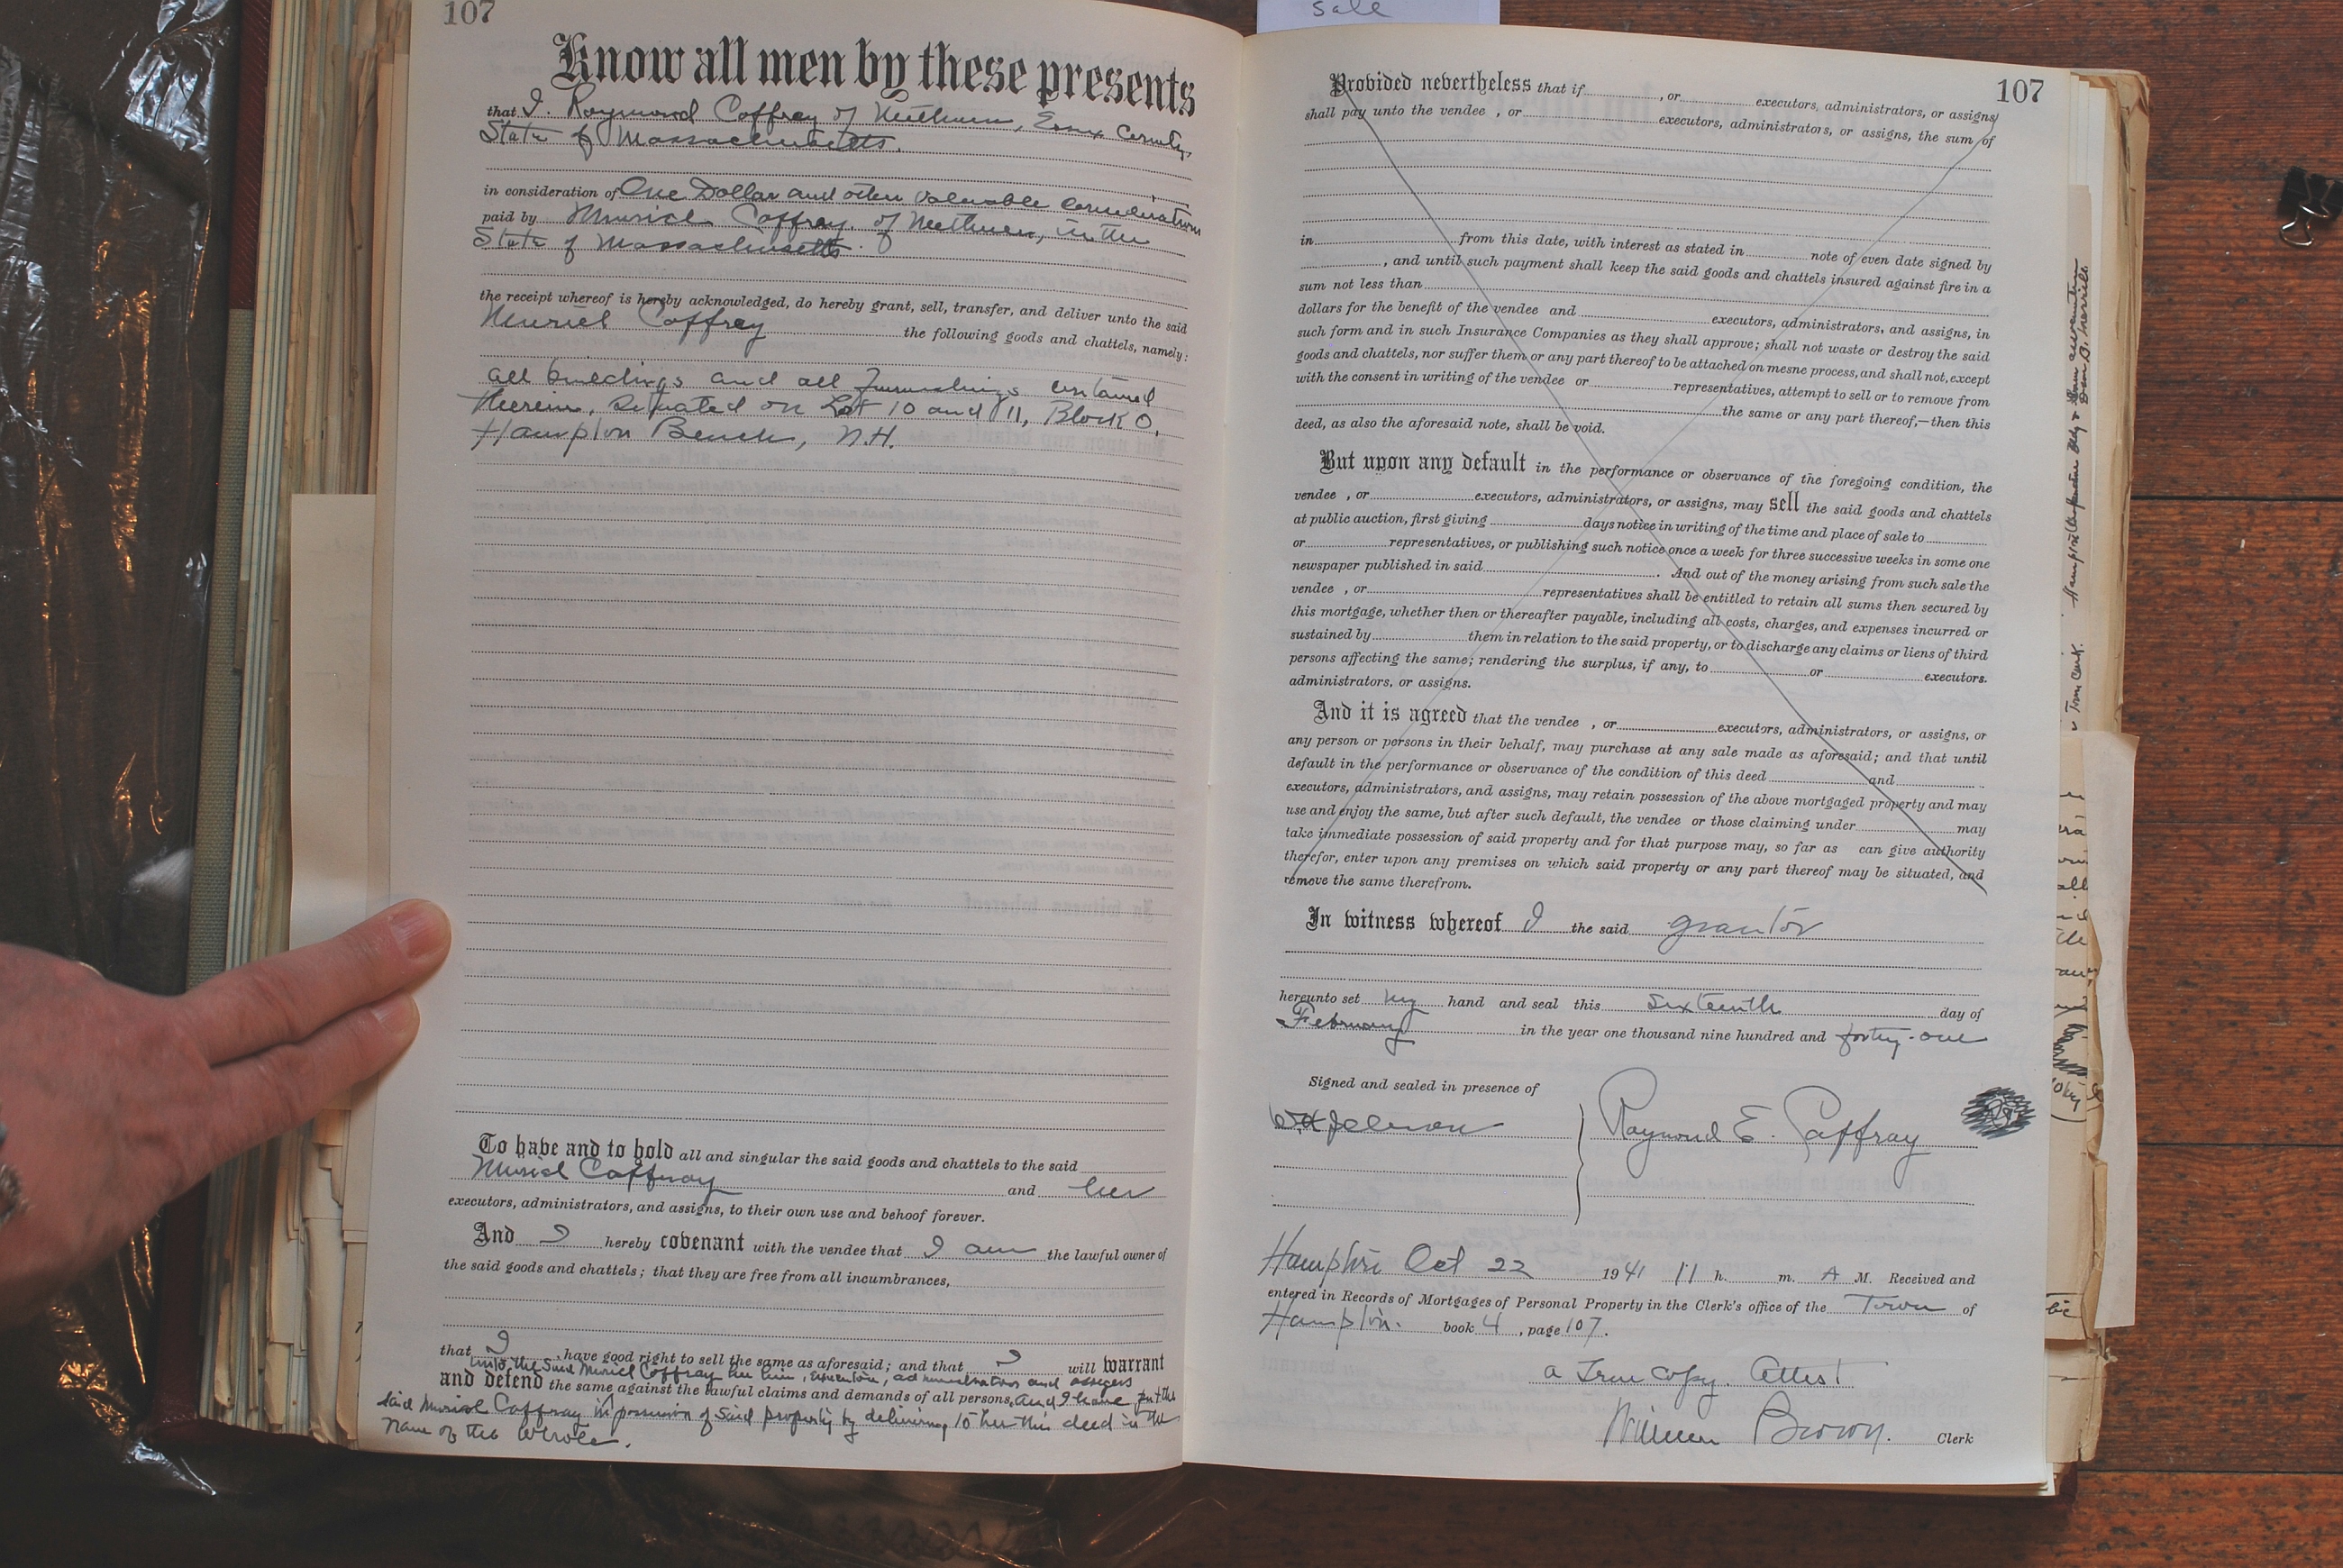 sale
107
Know all men by these presents
that I. Raymond Caffrey of Methuen, Essex County,
State of Massachusetts.
in consideration of One Dollar and other valuable consideration
paid by Muriel Caffrey. of Methuen, in the
State of Massachusetts.
the receipt whereof is hereby acknowledged, do hereby grant, sell, transfer, and deliver unto the said
Muriel Caffrey the following goods and chattels, namely:
all buildings and all furnishings contained
therein, situated on Lot 10 and 11, Block O,
Hampton Beach, N.H.
To have and to hold all and singular the said goods and chattels to the said
Muriel Caffray and her
executors, administrators, and assigns, to their own use and behoof forever.
And I hereby covenant with the vendee that I am the lawful owner of
the said goods and chattels; that they are free from all incumbrances,
that I have good right to sell the same as aforesaid; and that I will warrant
unto the said Muriel Caffray her heirs, executors, administrators and assigns
and defend the same against the lawful claims and demands of all persons, and I have put the
said Muriel Caffray in possession of said property by delivering to her this deed in the
name of the whole.
107
Provided nevertheless that if , or executors, administrators, or assigns,
shall pay unto the vendee , or executors, administrators, or assigns, the sum of
in from this date, with interest as stated in note of even date signed by
, and until such payment shall keep the said goods and chattels insured against fire in a
sum not less than
dollars for the benefit of the vendee and executors, administrators, and assigns, in
such form and in such Insurance Companies as they shall approve; shall not waste or destroy the said
goods and chattels, nor suffer them or any part thereof to be attached on mesne process, and shall not, except
with the consent in writing of the vendee or representatives, attempt to sell or to remove from
the same or any part thereof,—then this
deed, as also the aforesaid note, shall be void.
But upon any default in the performance or observance of the foregoing condition, the
vendee , or executors, administrators, or assigns, may sell the said goods and chattels
at public auction, first giving days notice in writing of the time and place of sale to
or representatives, or publishing such notice once a week for three successive weeks in some one
newspaper published in said . And out of the money arising from such sale the
vendee , or representatives shall be entitled to retain all sums then secured by
this mortgage, whether then or thereafter payable, including all costs, charges, and expenses incurred or
sustained by them in relation to the said property, or to discharge any claims or liens of third
persons affecting the same; rendering the surplus, if any, to or executors.
administrators, or assigns.
And it is agreed that the vendee , or executors, administrators, or assigns, or
any person or persons in their behalf, may purchase at any sale made as aforesaid; and that until
default in the performance or observance of the condition of this deed and
executors, administrators, and assigns, may retain possession of the above mortgaged property and may
use and enjoy the same, but after such default, the vendee or those claiming under may
take immediate possession of said property and for that purpose may, so far as can give authority
therefor, enter upon any premises on which said property or any part thereof may be situated, and
remove the same therefrom.
In witness whereof I the said grantor
hereunto set my hand and seal this sixteenth day of
February in the year one thousand nine hundred and forty-one
Signed and sealed in presence of
Raymond E. Caffray
Hampton Oct 22 1941 11 h. m. A M. Received and
entered in Records of Mortgages of Personal Property in the Clerk's office of the Town of
Hampton. book 4, page 107.
a True Copy. Attest
William Brown. Clerk